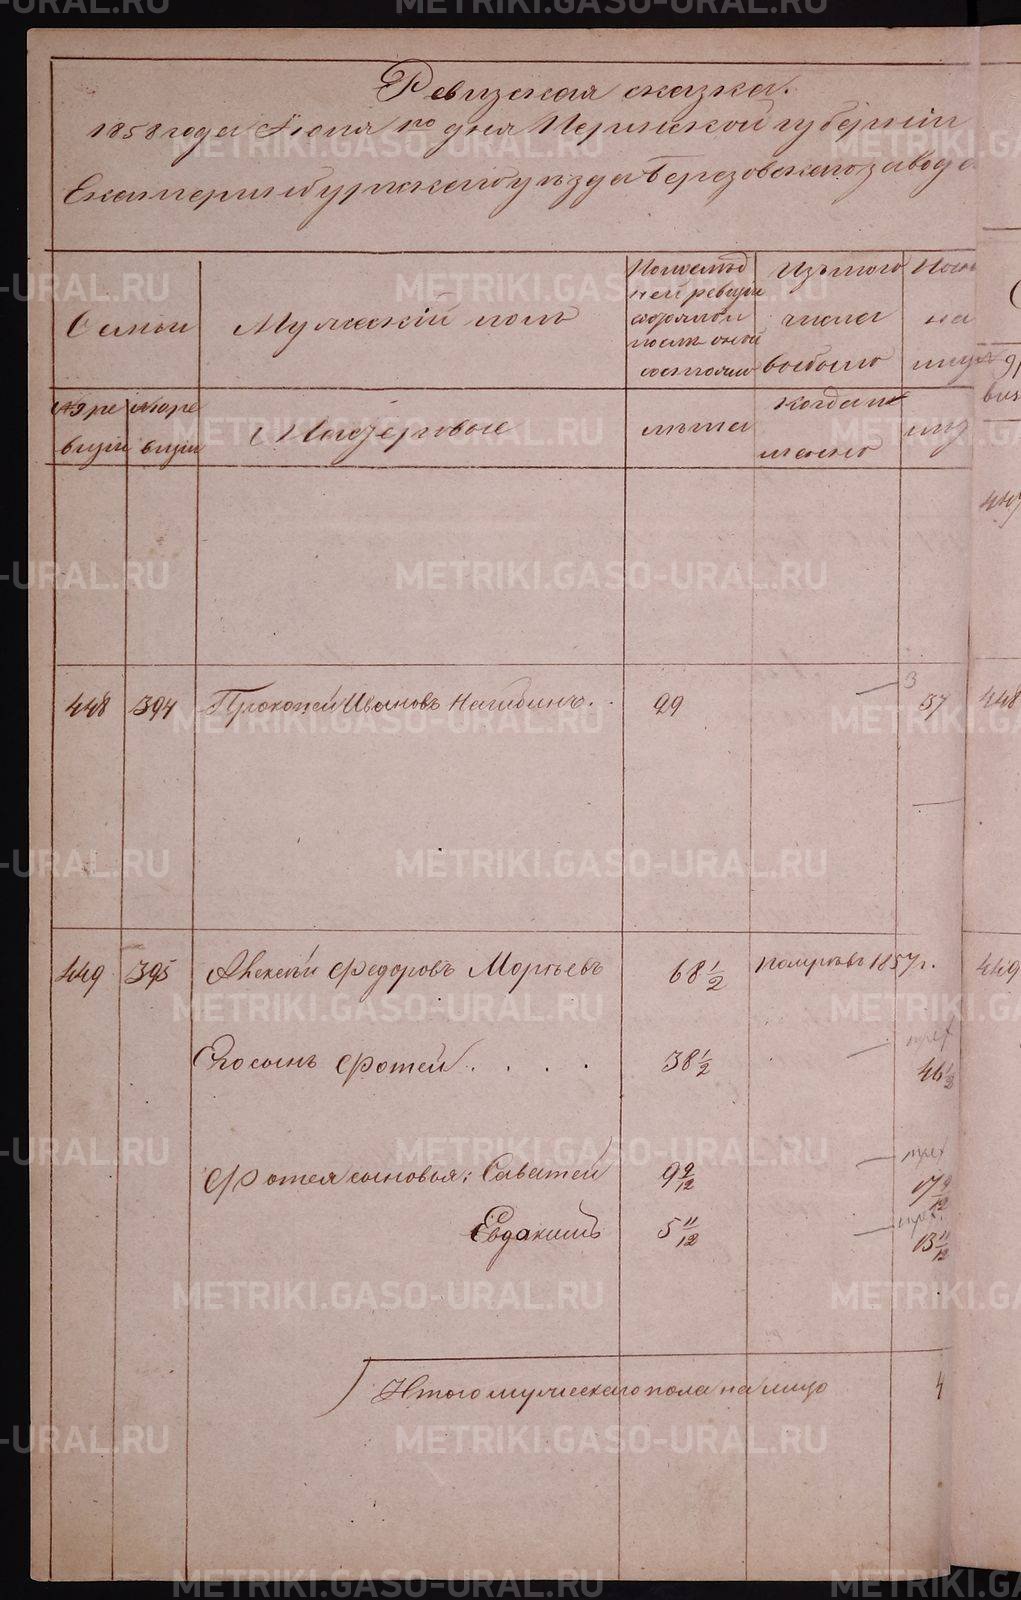 METRIKI.GASO-URAL.RU
Ревизская сказка.
1858 года Июня по дня Пермской губернии
Екатеринбургскаго уезда Березовскаго завода
Семьи
Мужескій полъ
По последней ревизіи состояло и после оной
Изъ того числа выбыло
Ныне на лицо
№ 9 ревизіи
№ 10 ревизіи
Мастеровые
лета
когда именно
448 394 Прокопей Ивановъ Нагибинъ . . 29 57
448
449 395 Алексей Федоровъ Мортьевъ 68 1/2 померъ въ 1857 г.
449
Его сынъ Фотей . . . . 38 1/2 46 1/2
Фотея сыновья: Саватей 9 9/12 17 9/12
Евдакимъ 5 11/12 13 11/12
Итого мужескаго пола на лицо 4